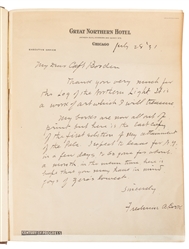 GREAT NORTHERN HOTEL
CHICAGO
July 26
My dear Capt
Thank you very much for
the Log of the Northern Light. It is
a work of art which I will treasure
My books are now all out of
print but here is the last copy
of the first edition of My attainment
of the Pole. I expect to leave for N.Y.
in a few days to be gone for about
a month in the mean time here is
hope that you may have as many
joys of zero's bounds.
Sincerely
Frederick A Cook